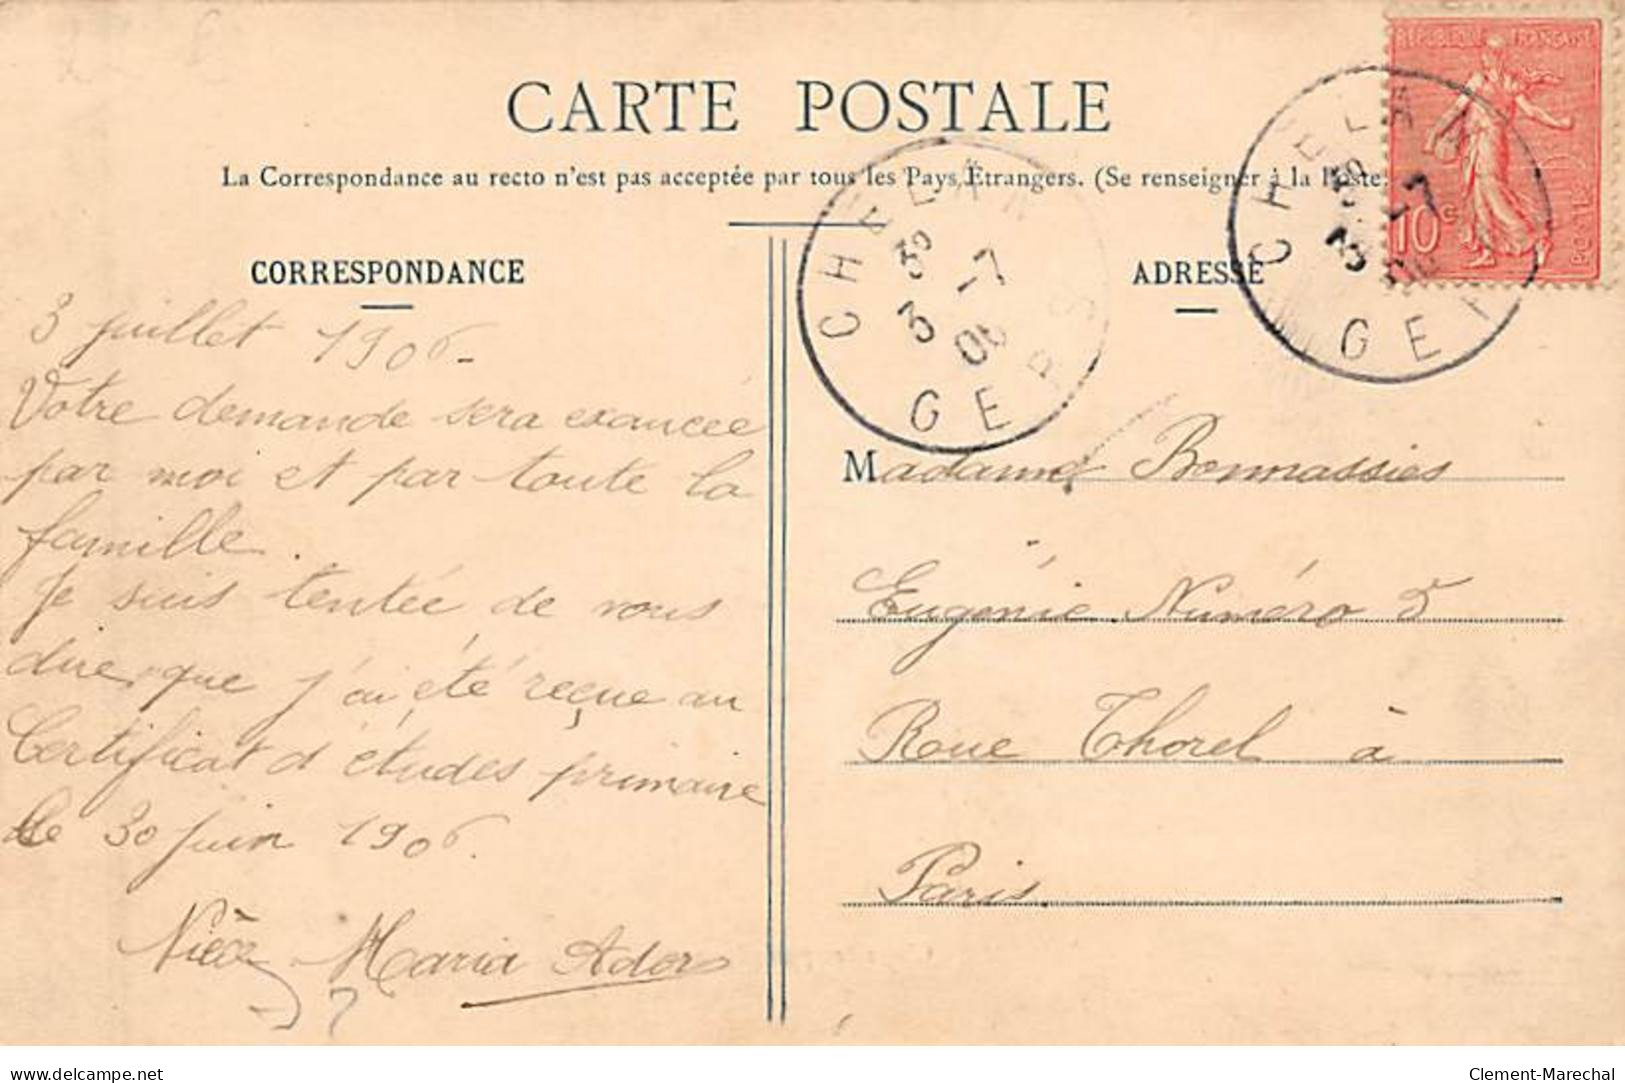 CARTE POSTALE
La Correspondance au recto n'est pas acceptée par tous les Pays Étrangers. (Se renseigner à la Poste
CORRESPONDANCE
3 juillet 1906-
Votre demande sera exaucée
par moi et par toute la
famille.
Je suis tentée de vous
dire que j'ai été reçue au
Certificat d'études primaire
le 30 juin 1906.
Nièce Maria Ader
ADRESSE
Madame Bonnassies
Eugénie Numéro 5
Roue Thorel à
Paris
CHÉLAN
3E
3 -7
06
GERS
CHÉLAN
3E
3 -7
06
GERS
RÉPUBLIQUE FRANÇAISE
10c
POSTES
delcampe.net
Clement-Marechal